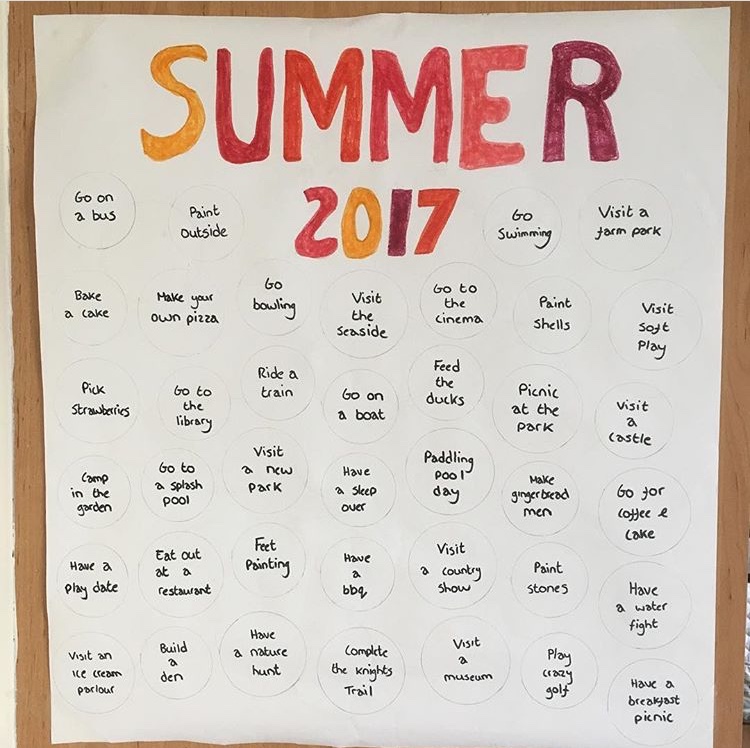 SUMMER
2017
Go on
a bus
Paint
outside
Go
Swimming
Visit a
farm park
Bake
a cake
Make your
own pizza
Go
bowling
Visit
the
seaside
Go to
the
cinema
Paint
Shells
Visit
Soft
Play
Pick
Strawberries
Go to
the
library
Ride a
train
Go on
a boat
Feed
the
ducks
Picnic
at the
park
Visit
a
castle
Camp
in the
garden
Go to
a splash
pool
Visit
a new
park
Have
a sleep
over
Paddling
pool
day
Make
gingerbread
men
Go for
coffee &
cake
Have a
play date
Eat out
at a
restaurant
Feet
Painting
Have
a
bbq
Visit
a country
show
Paint
stones
Have
a water
fight
Visit an
ice cream
parlour
Build
a
den
Have
a nature
hunt
Complete
the knights
Trail
Visit
a
museum
Play
crazy
golf
Have a
breakfast
picnic